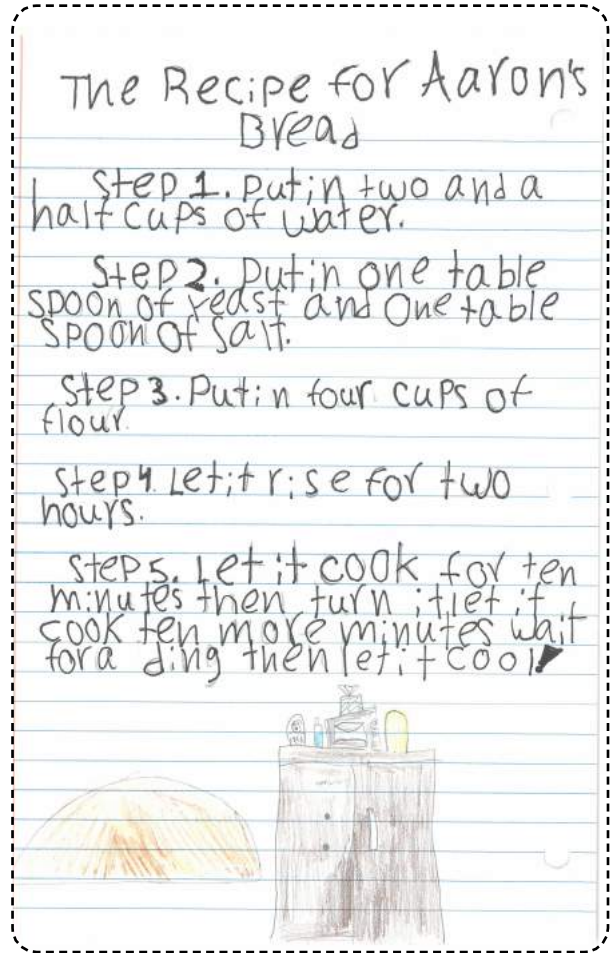 The Recipe for Aaron's
Bread
Step 1. Put in two and a
half cups of water.
Step 2. Put in one table
spoon of yeast and One table
spoon of salt.
Step 3. Put in four cups of
flour.
Step 4. Let it rise for two
hours.
Step 5. Let it cook for ten
minutes then turn it let it
cook ten more minutes wait
for a ding then let it cool!